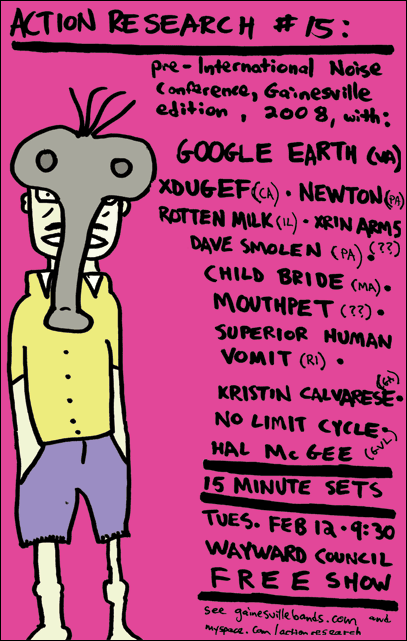 ACTION RESEARCH #15:
pre-International Noise
Conference, Gainesville
edition, 2008, with:
GOOGLE EARTH (VA)
XDUGEF (CA) · NEWTON (PA)
ROTTEN MILK (IL) · XRIN ARMS (??)
DAVE SMOLEN (PA) ·
CHILD BRIDE (MA) ·
MOUTHPET (??) ·
SUPERIOR HUMAN
VOMIT (RI) ·
KRISTIN CALVARESE ·
NO LIMIT CYCLE ·
HAL McGEE (GVL)
15 MINUTE SETS
TUES. FEB 12 · 9:30
WAYWARD COUNCIL
FREE SHOW
see gainesvillebands.com and
myspace.com/actionresearch